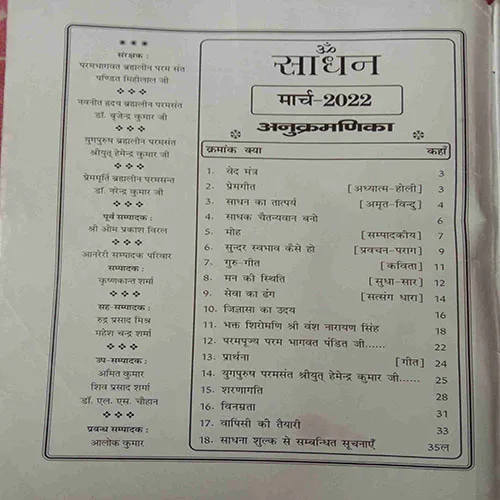 संरक्षक :
परमभागवत ब्रह्मलीन परम संत
पण्डित मिहीलाल जी
नवनीत हृदय ब्रह्मलीन परमसंत
डॉ. बृजेन्द्र कुमार जी
युगपुरुष ब्रह्मलीन परमसंत
श्रीयुत् हेमेन्द्र कुमार जी
प्रेममूर्ति ब्रह्मलीन परमसन्त
डॉ. नरेन्द्र कुमार जी
पूर्व सम्पादक :
श्री ओम प्रकाश विरल
आनरेरी सम्पादक परिवार
सम्पादक :
कृष्णकान्त शर्मा
सह-सम्पादक :
रुद्र प्रसाद मिश्र
महेश चन्द्र शर्मा
उप-सम्पादक :
अमित कुमार
शिव प्रसाद शर्मा
डॉ. एल. एस. चौहान
प्रबन्ध सम्पादक :
आलोक कुमार
ॐ
साधन
मार्च-2022
अनुक्रमणिका
क्रमांक क्या कहाँ
1. वेद मंत्र 3
2. प्रेमगीत [अध्यात्म-होली] 3
3. साधन का तात्पर्य [अमृत-विन्दु] 4
4. साधक चैतन्यवान बनो 6
5. मोह [सम्पादकीय] 7
6. सुन्दर स्वभाव कैसे हो [प्रवचन-पराग] 9
7. गुरु-गीत [कविता] 11
8. मन की स्थिति [सुधा-सार] 12
9. सेवा का ढंग [सत्संग धारा] 14
10. जिज्ञासा का उदय 16
11. भक्त शिरोमणि श्री वंश नारायण सिंह 18
12. परमपूज्य परम भागवत पंडित जी...... 22
13. प्रार्थना [गीत] 24
14. युगपुरुष परमसंत श्रीयुत् हेमेन्द्र कुमार जी...... 25
15. शरणागति 28
16. विनम्रता 31
17. वापिसी की तैयारी 33
18. साधना शुल्क से सम्बन्धित सूचनाएँ 35ल